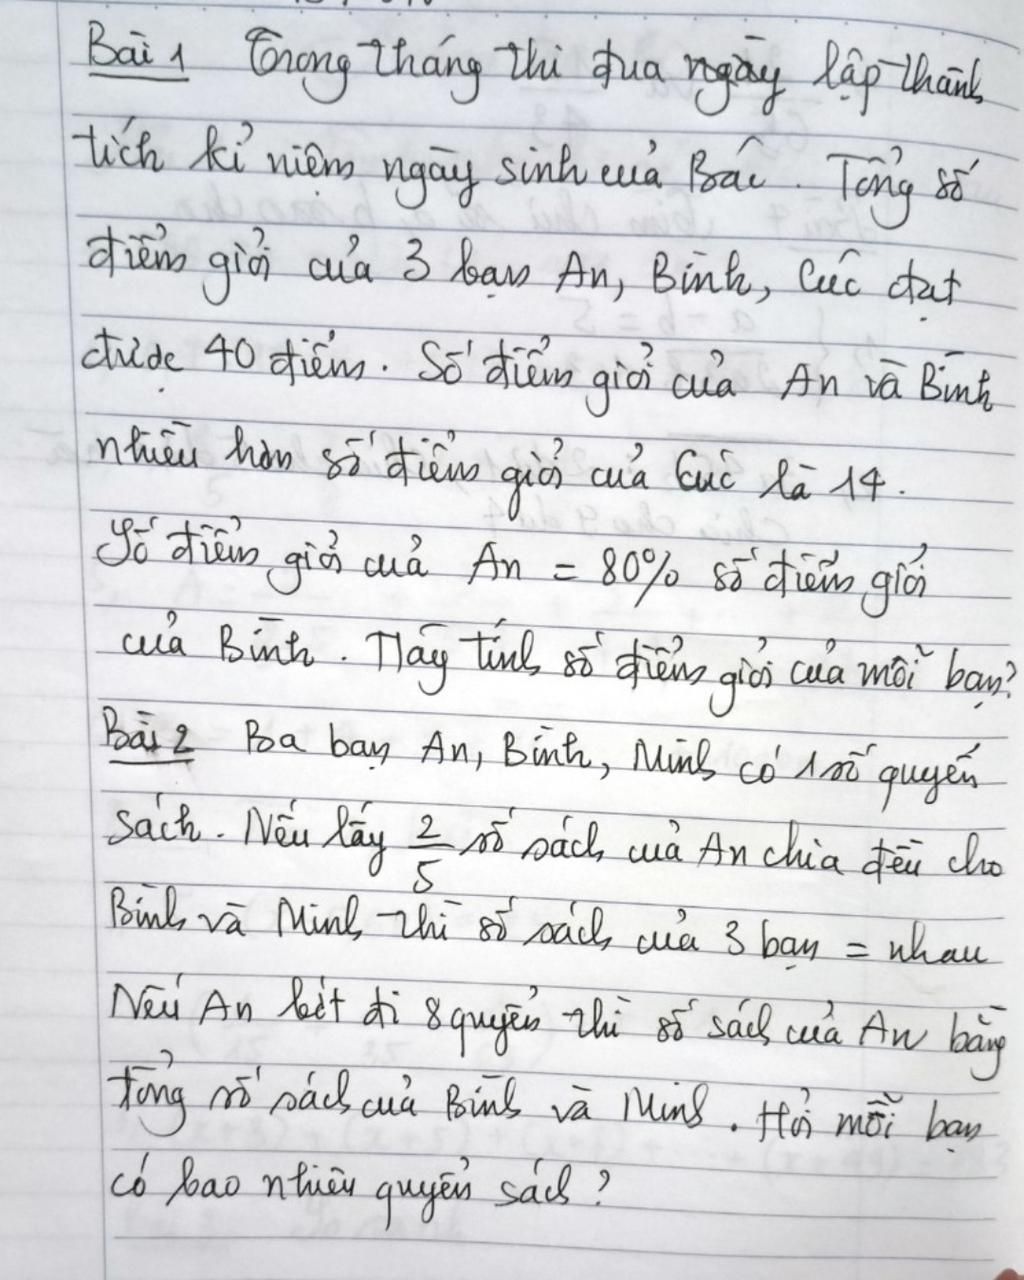 Bài 1 Trong tháng thi đua ngày lập thành
tích kỉ niệm ngày sinh của Bác. Tổng số
điểm giỏi của 3 bạn An, Bình, Cúc đạt
được 40 điểm. Số điểm giỏi của An và Bình
nhiều hơn số điểm giỏi của Cúc là 14.
Số điểm giỏi của An = 80% số điểm giỏi
của Bình. Hãy tính số điểm giỏi của mỗi bạn?
Bài 2 Ba bạn An, Bình, Minh có 1 số quyển
sách. Nếu lấy 2/5 số sách của An chia đều cho
Bình và Minh thì số sách của 3 bạn = nhau
Nếu An bớt đi 8 quyển thì số sách của An bằng
tổng số sách của Bình và Minh. Hỏi mỗi bạn
có bao nhiêu quyển sách?